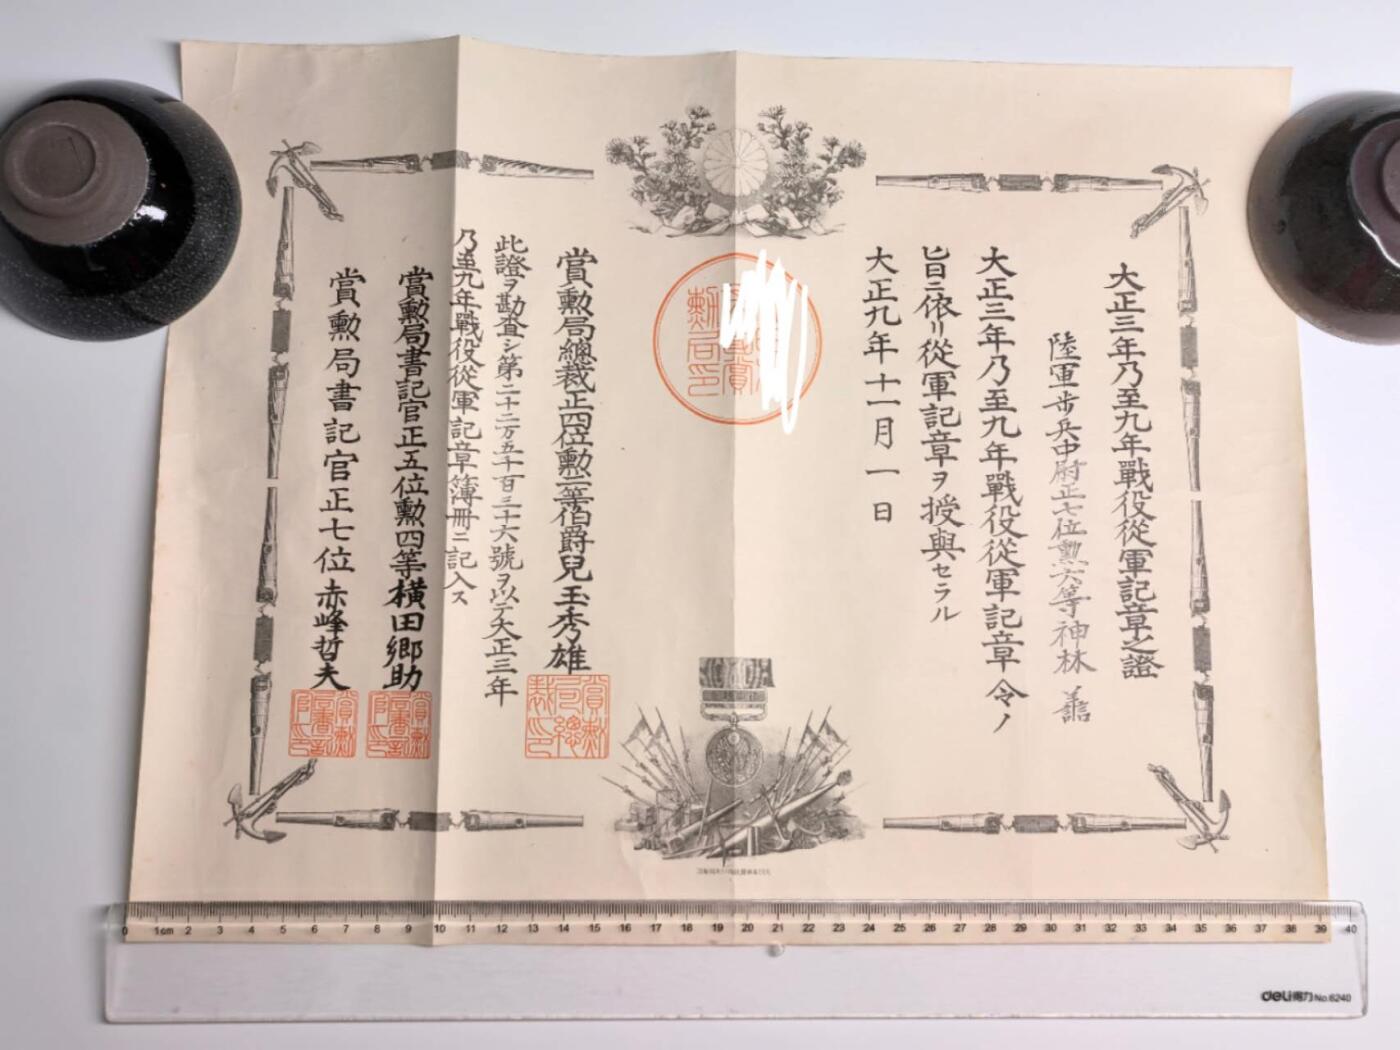 大正三年乃至九年戰役從軍記章之證
陸軍步兵中尉正七位勲六等神林
大正三年乃至九年戰役從軍記章令ノ
旨ニ依リ從軍記章ヲ授與セラル
大正九年十一月一日
賞勲局總裁正四位勲二等伯爵兒玉秀雄
此證ヲ勘査シ第二十二万五千百三十六號ヲ以テ大正三年
乃至九年戰役從軍記章簿冊ニ記入ス
賞勲局書記官正五位勲四等橫田郷助
賞勲局書記官正七位赤峰哲夫
賞勲局總裁印
0 1cm 2 3 4 5 6 7 8 9 10 11 12 13 14 15 16 17 18 19 20 21 22 23 24 25 26 27 28 29 30 31 32 33 34 35 36 37 38 39 40
deli得力 No.6240